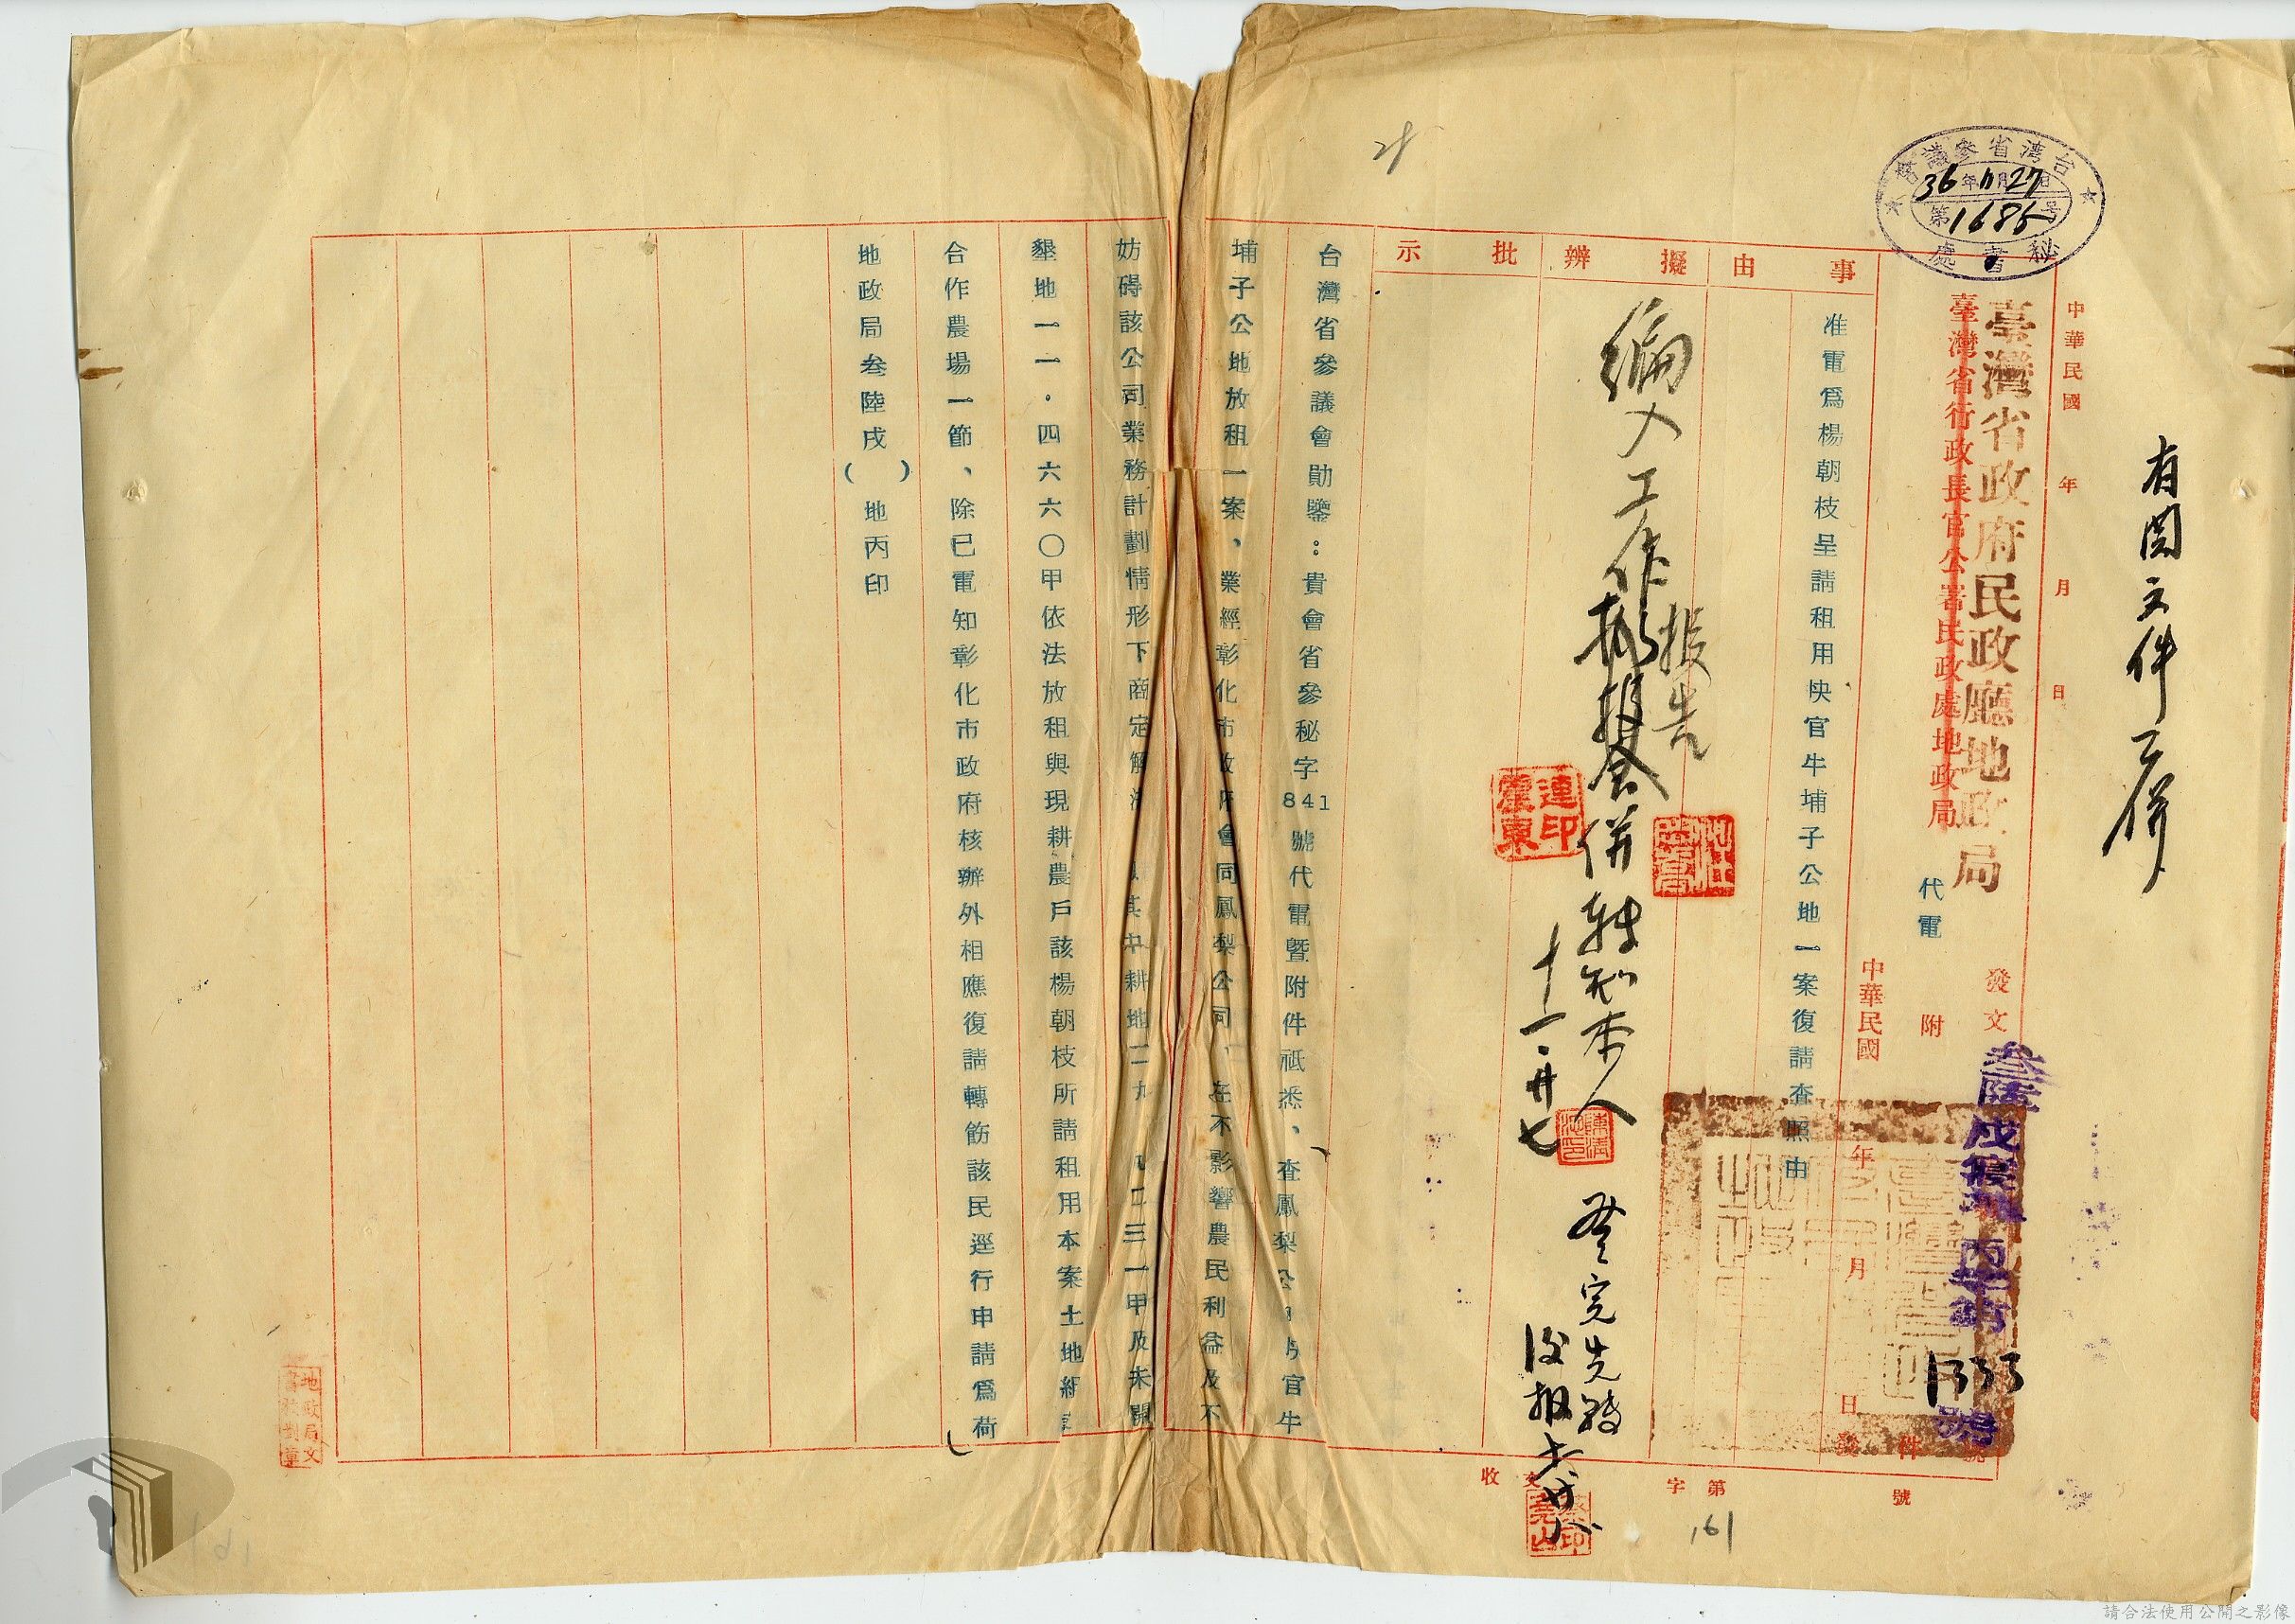 有関文件
中華民國 年 月 日
臺灣省政府民政廳地政局
臺灣省行政長官公署民政處地政局
代電
發文
叁陸戌
地丙字第
1333
號
附
件
中華民國
年
月
日
台湾省參議會
36年11月27日
第1685号
秘書處
事由
准電爲楊朝枝呈請租用快官牛埔子公地一案復請查照由
擬辦
編入工作報告
併轉知本人
十一.廿七
登完先轉
後報
批示
台灣省參議會勛鑒：貴會省參秘字841號代電暨附件祗悉、查鳳梨公司快官牛
埔子公地放租一案、業經彰化市政府會同鳳梨公司、在不影響農民利益及不
妨碍該公司業務計劃情形下商定解決 其中耕地二九 二三一甲及未開
墾地一一．四六六〇甲依法放租與現耕農戶該楊朝枝所請租用本案土地組
合作農場一節、除已電知彰化市政府核辦外相應復請轉飭該民逕行申請爲荷
地政局叁陸戌（ ）地丙印
收文 字第 號
161
地政局文
請合法使用公開之影像